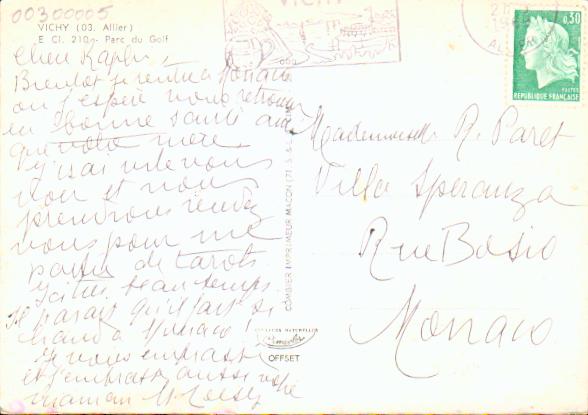 00300005
VICHY (03. Allier)
E Cl. 210 - Parc du Golf
VICHY
0,30
POSTES
REPUBLIQUE FRANÇAISE
Bientôt je rentre à Monaco
où j'espère vous retrouver
en bonne santé ainsi
que votre mère
J'irai vite vous
voir et nous
prendrons rendez
vous pour une
partie de tarots
Ici très beau temps
Il parait qu'il fait si
chaud à Monaco !
Je vous embrasse
et j'embrasse aussi votre
maman
COMBIER IMPRIMEUR MACON (71)
OFFSET
Mademoiselle R. Paret
Villa Speranza
Rue Bosio
Monaco